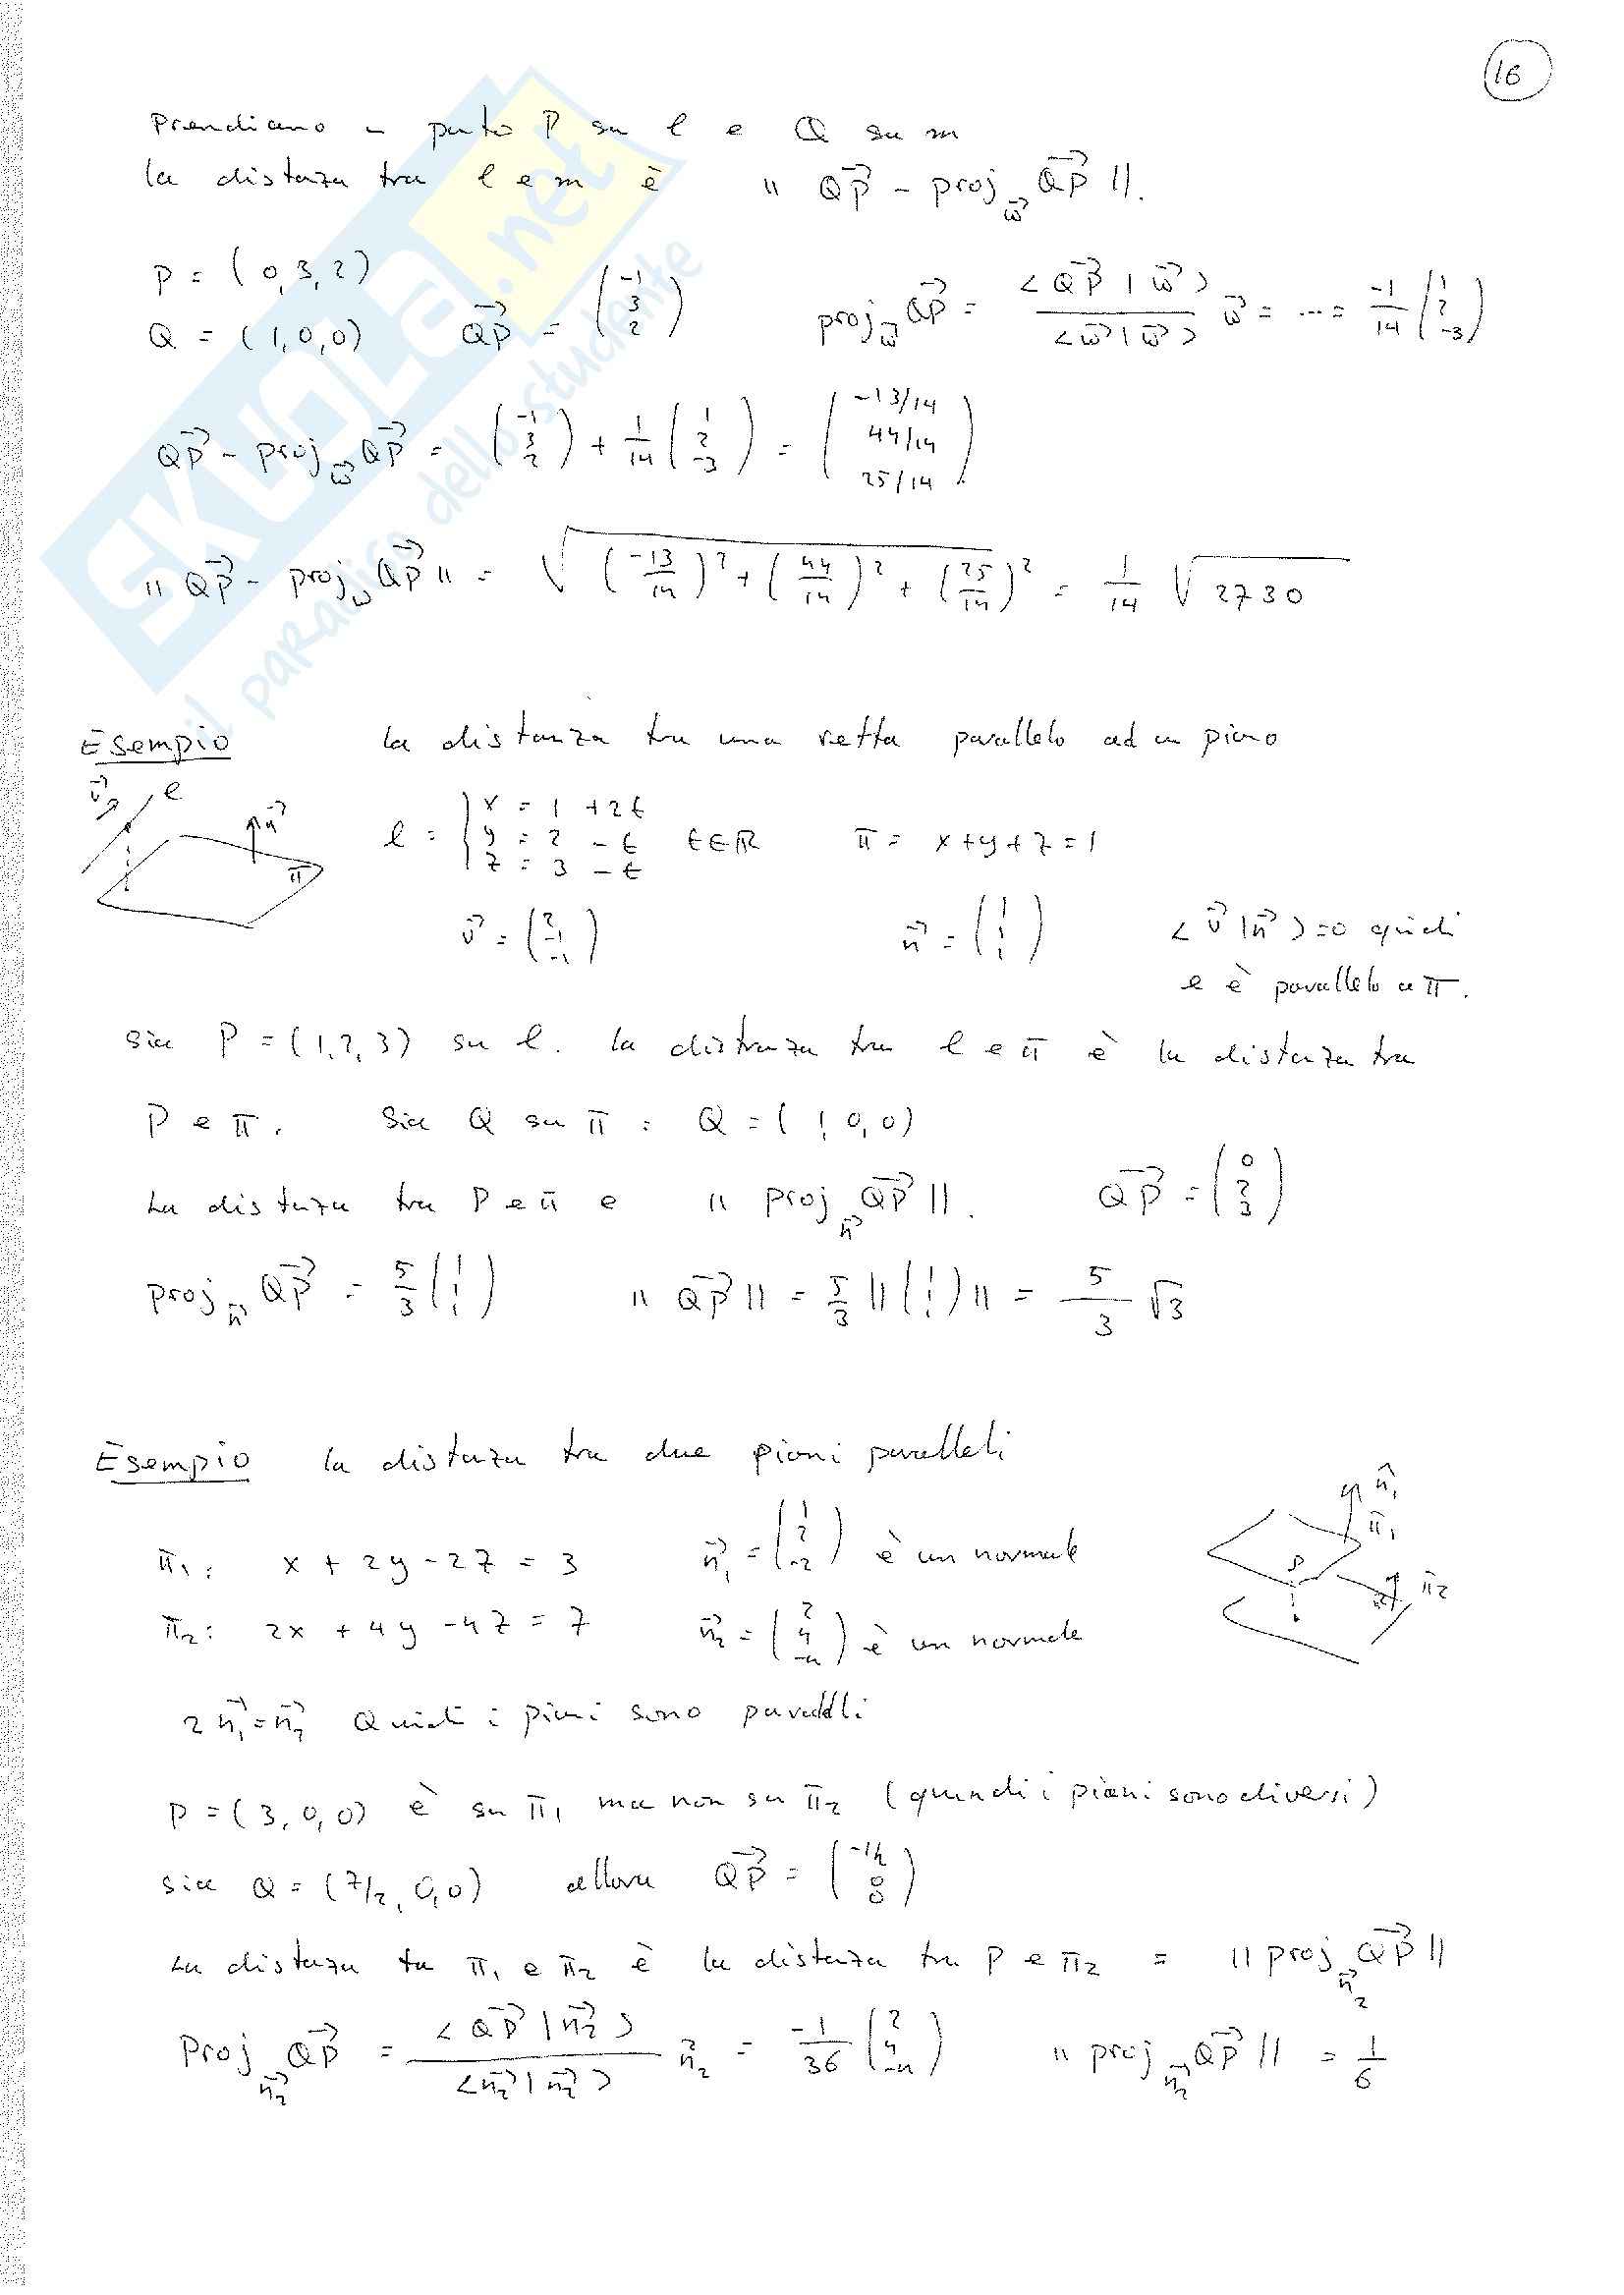 16
Prendiamo un punto P su l e Q su m
la distanza tra l e m è || QP→ - proj_w→ QP→ ||.
P = (0,3,2)
Q = (1,0,0) QP→ = (-1 3 2) proj_w→ QP→ = <QP→|w→> / <w→|w→> w→ = ... = -1/14 (1 2 -3)
QP→ - proj_w→ QP→ = (-1 3 2) + 1/14 (1 2 -3) = (-13/14 44/14 25/14)
|| QP→ - proj_w→ QP→ || = √ (-13/14)² + (44/14)² + (25/14)² = 1/14 √2730
Esempio la distanza tra una retta parallelo ad un piano
v→ l n→ π
l = { x = 1 + 2t
y = 2 - t t∈ℝ π = x+y+z=1
z = 3 - t
v→ = (2 -1 -1) n→ = (1 1 1) <v→|n→>=0 quindi
l è parallelo a π.
sia P = (1,2,3) su l. la distanza tra l e π è la distanza tra
P e π. Sia Q su π : Q = (1,0,0)
La distanza tra P e π e || proj_n→ QP→ ||. QP→ = (0 2 3)
proj_n→ QP→ = 5/3 (1 1 1) || QP→ || = 5/3 || (1 1 1) || = 5/3 √3
Esempio la distanza tra due piani paralleli
π₁: x + 2y - 2z = 3 n₁→ = (1 2 -2) è un normale
π₂: 2x + 4y - 4z = 7 n₂→ = (2 4 -4) è un normale
n₁→ π₁ P π₂
2n₁→ = n₂→ Quindi i piani sono paralleli
P = (3,0,0) è su π₁ ma non su π₂ (quindi i piani sono diversi)
sia Q = (7/2, 0,0) allora QP→ = (-1/2 0 0)
La distanza tra π₁ e π₂ è la distanza tra P e π₂ = || proj_n₂→ QP→ ||
Proj_n₂→ QP→ = <QP→|n₂→> / <n₂→|n₂→> n₂→ = -1/36 (2 4 -4) || proj_n₂→ QP→ || = 1/6
SKUOLA.net
il paradiso dello studente